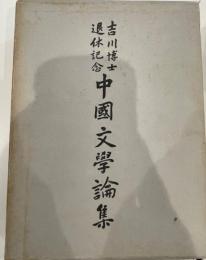 吉川博士
退休記念
中國文學論集